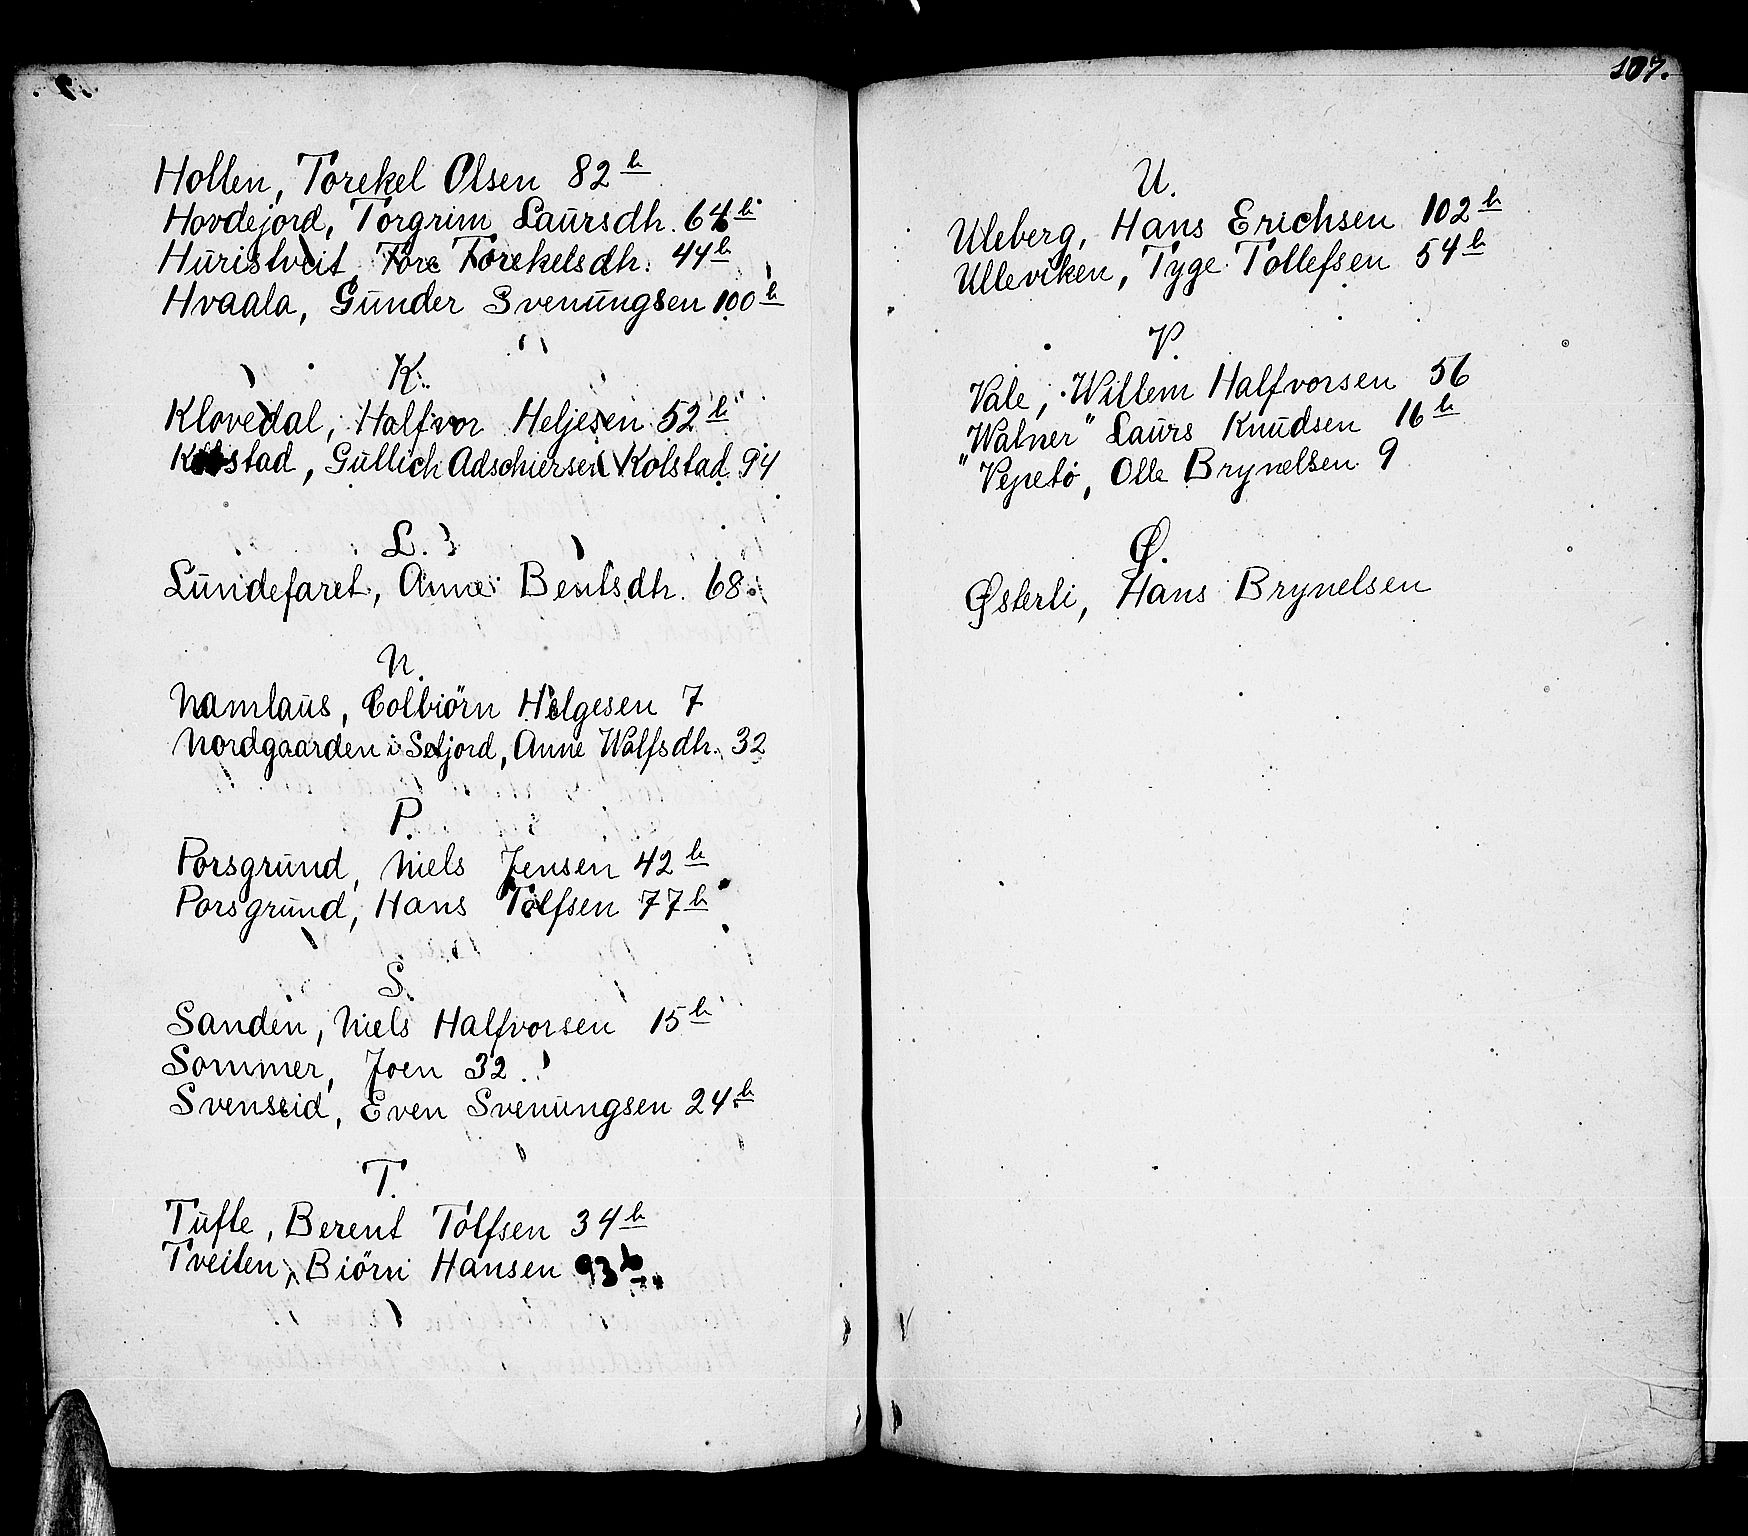 Hollen, Torekel Olsen 82 b
Hovdejord, Torgrim Laursdh. 64 b
Huristveit, Tore Torekelsdh. 44 b
Hvaala, Gunder Svenungsen 100 b
K.
Klovedal, Halfvor Heljesen 52 b
Kolstad, Gullich Adschiersen Kolstad 94
L.
Lundefaret, Anne Bentsdh. 68
N.
Namlaus, Colbiörn Helgesen 7
Nordgaarden i Setjord, Anne Wolfsdh. 32
P.
Porsgrund, Niels Jensen 42 b
Porsgrund, Hans Tolfsen 77 b
S.
Sanden, Niels Halfvorsen 15 b
Sommer, Joen 32.
Svenseid, Even Svenungsen 24 b
T.
Tufte, Berent Tolfsen 34 b
Tveiten, Biörn Hansen 93 b
107.
U.
Uleberg, Hans Erichsen 102 b
Ulleviken, Tyge Tollefsen 54 b
V.
Vale, Willem Halfvorsen 56
"Walner" Laurs Knudsen 16 b
"Vejetö, Olle Brynelsen 9
Ø.
Østerli, Hans Brynelsen